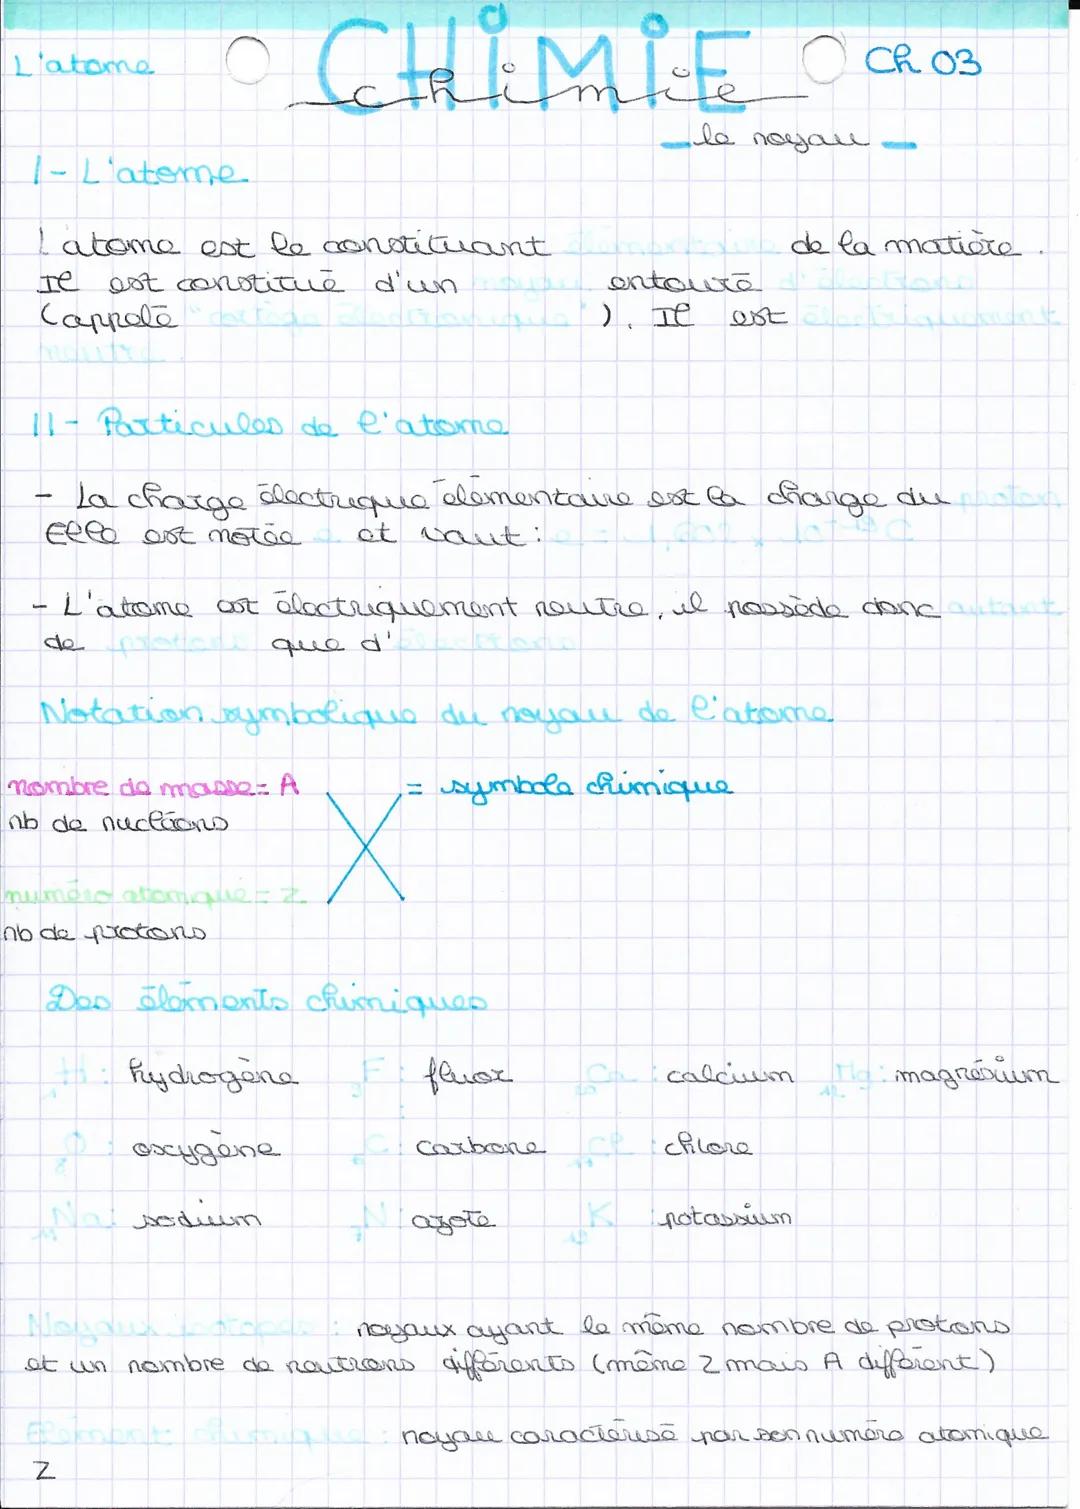 L'atome
CHIMIE
chimie
Ch 03
- le noyau -
I - L'atome
L'atome est le constituant élémentaire de la matière.
Il est constitué d'un noyau entouré d'électrons
(appelé "cortège électronique"). Il est électriquement
neutre.
II - Particules de l'atome
- La charge électrique élémentaire est la charge du proton
Elle est notée e et vaut : e = 1,602 x 10⁻¹⁹ C
- L'atome est électriquement neutre, il possède donc autant
de protons que d'électrons
Notation symbolique du noyau de l'atome
nombre de masse = A
X = symbole chimique
nb de nucléons
numéro atomique = Z
nb de protons
Des éléments chimiques
₁H : hydrogène ₉F : fluor ₂₀Ca : calcium ₁₂Mg : magnésium
₈O : oxygène ₆C : carbone ₁₇Cl : chlore
₁₁Na : sodium ₇N : azote ₁₉K : potassium
Noyaux isotopes : noyaux ayant le même nombre de protons
et un nombre de neutrons différents (même Z mais A différent)
Elément chimique : noyau caractérisé par son numéro atomique
Z